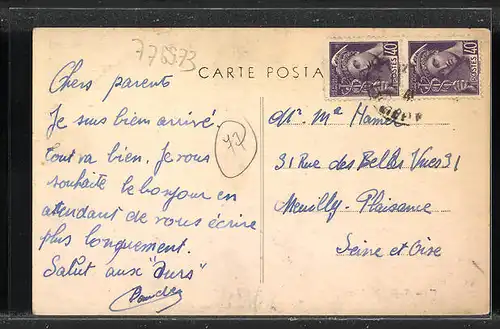 776573
CARTE POSTA
40
POSTES
40
POSTES
Chers parents
Je suis bien arrivé.
tout va bien. Je vous
souhaite le bonjour en
attendant de vous écrire
plus longuement.
Salut aux "Ours"
72
Mr. Me Hamel
31 Rue des Belles Vues 31
Neuilly-Plaisance
Seine et Oise